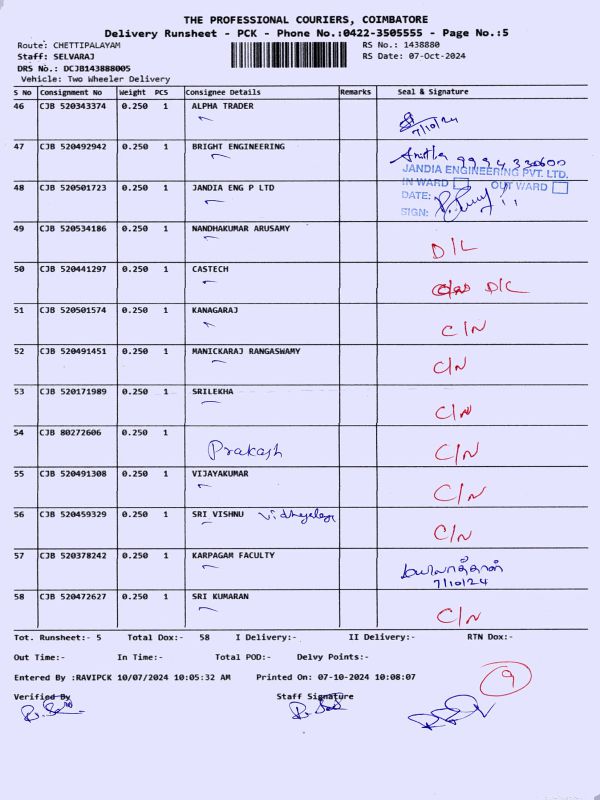 THE PROFESSIONAL COURIERS, COIMBATORE
Delivery Runsheet - PCK - Phone No.:0422-3505555 - Page No.:5
Route: CHETTIPALAYAM RS No.: 1438880
Staff: SELVARAJ RS Date: 07-Oct-2024
DRS No.: DCJB143888005
Vehicle: Two Wheeler Delivery
S No Consignment No Weight PCS Consignee Details Remarks Seal & Signature
46 CJB 520343374 0.250 1 ALPHA TRADER
7/10/24
47 CJB 520492942 0.250 1 BRIGHT ENGINEERING
9994330600
JANDIA ENGINEERING PVT. LTD.
48 CJB 520501723 0.250 1 JANDIA ENG P LTD IN WARD OUT WARD
DATE:
SIGN:
49 CJB 520534186 0.250 1 NANDHAKUMAR ARUSAMY
D/L
50 CJB 520441297 0.250 1 CASTECH
D/L
51 CJB 520501574 0.250 1 KANAGARAJ
C/N
52 CJB 520491451 0.250 1 MANICKARAJ RANGASWAMY
C/N
53 CJB 520171989 0.250 1 SRILEKHA
C/N
54 CJB 80272606 0.250 1
Prakash C/N
55 CJB 520491308 0.250 1 VIJAYAKUMAR
C/N
56 CJB 520459329 0.250 1 SRI VISHNU
C/N
57 CJB 520378242 0.250 1 KARPAGAM FACULTY
7/10/24
58 CJB 520472627 0.250 1 SRI KUMARAN
C/N
Tot. Runsheet:- 5 Total Dox:- 58 I Delivery:- II Delivery:- RTN Dox:-
Out Time:- In Time:- Total POD:- Delvy Points:-
Entered By :RAVIPCK 10/07/2024 10:05:32 AM Printed On: 07-10-2024 10:08:07
9
Verified By Staff Signature